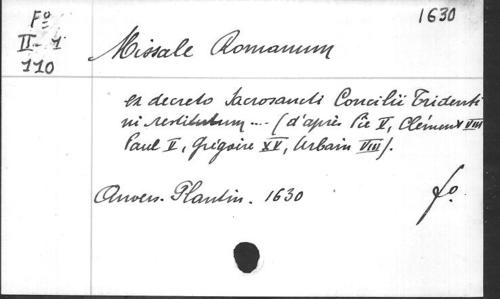 Fº
II-1
110
1630
Missale Romanum
ex decreto Sacrosancti Concilii Tridenti
ni restitutum ... (d'après Pie V, Clément VIII
Paul V, Grégoire XV, Urbain VIII).
Anvers. Plantin. 1630
fo.